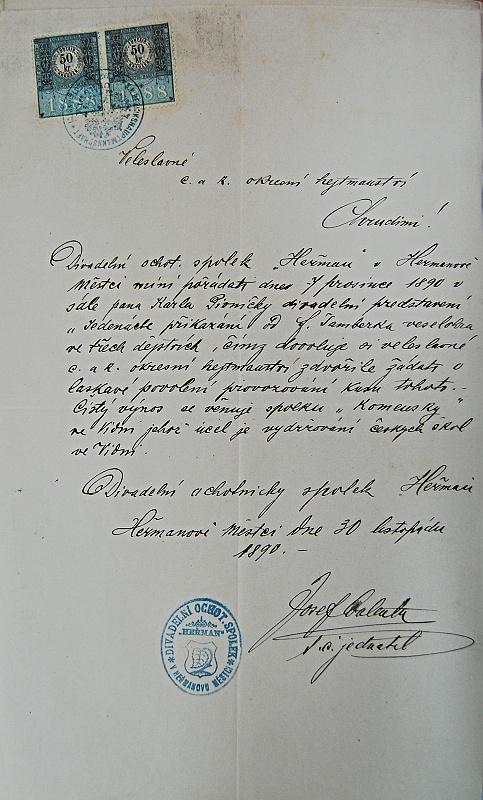 50 kr 50 kr
1888 1888
BEZIRKSHAUPTMANNSCHAFT
Veleslavné
c. a k. okresní hejtmanství
Chrudimi!
Divadelní ochot. spolek „Heřman" v Heřmanově
Městci míní pořádati dnes 7 prosince 1890 v
sále pana Karla divadelní představení
„Jedenácté přikázaní od F. Šamberka veselohra
ve třech dějstvích, čímž dovoluje si veleslavné
c. a k. okresní hejtmanství zdvořile žádati o
laskavé povolení provozování kusu tohoto. –
Čistý výnos se věnuje spolku „Komenský"
ve Vídni jehož účel je vydržování českých škol
ve Vídni.
Divadelní ochotnický spolek Heřman
Heřmanově Městci dne 30 listopadu
1890. –
Josef
t. č. jednatel
DIVADELNÍ OCHOT. SPOLEK
„HEŘMAN"
V HEŘMANOVU MĚSTCI